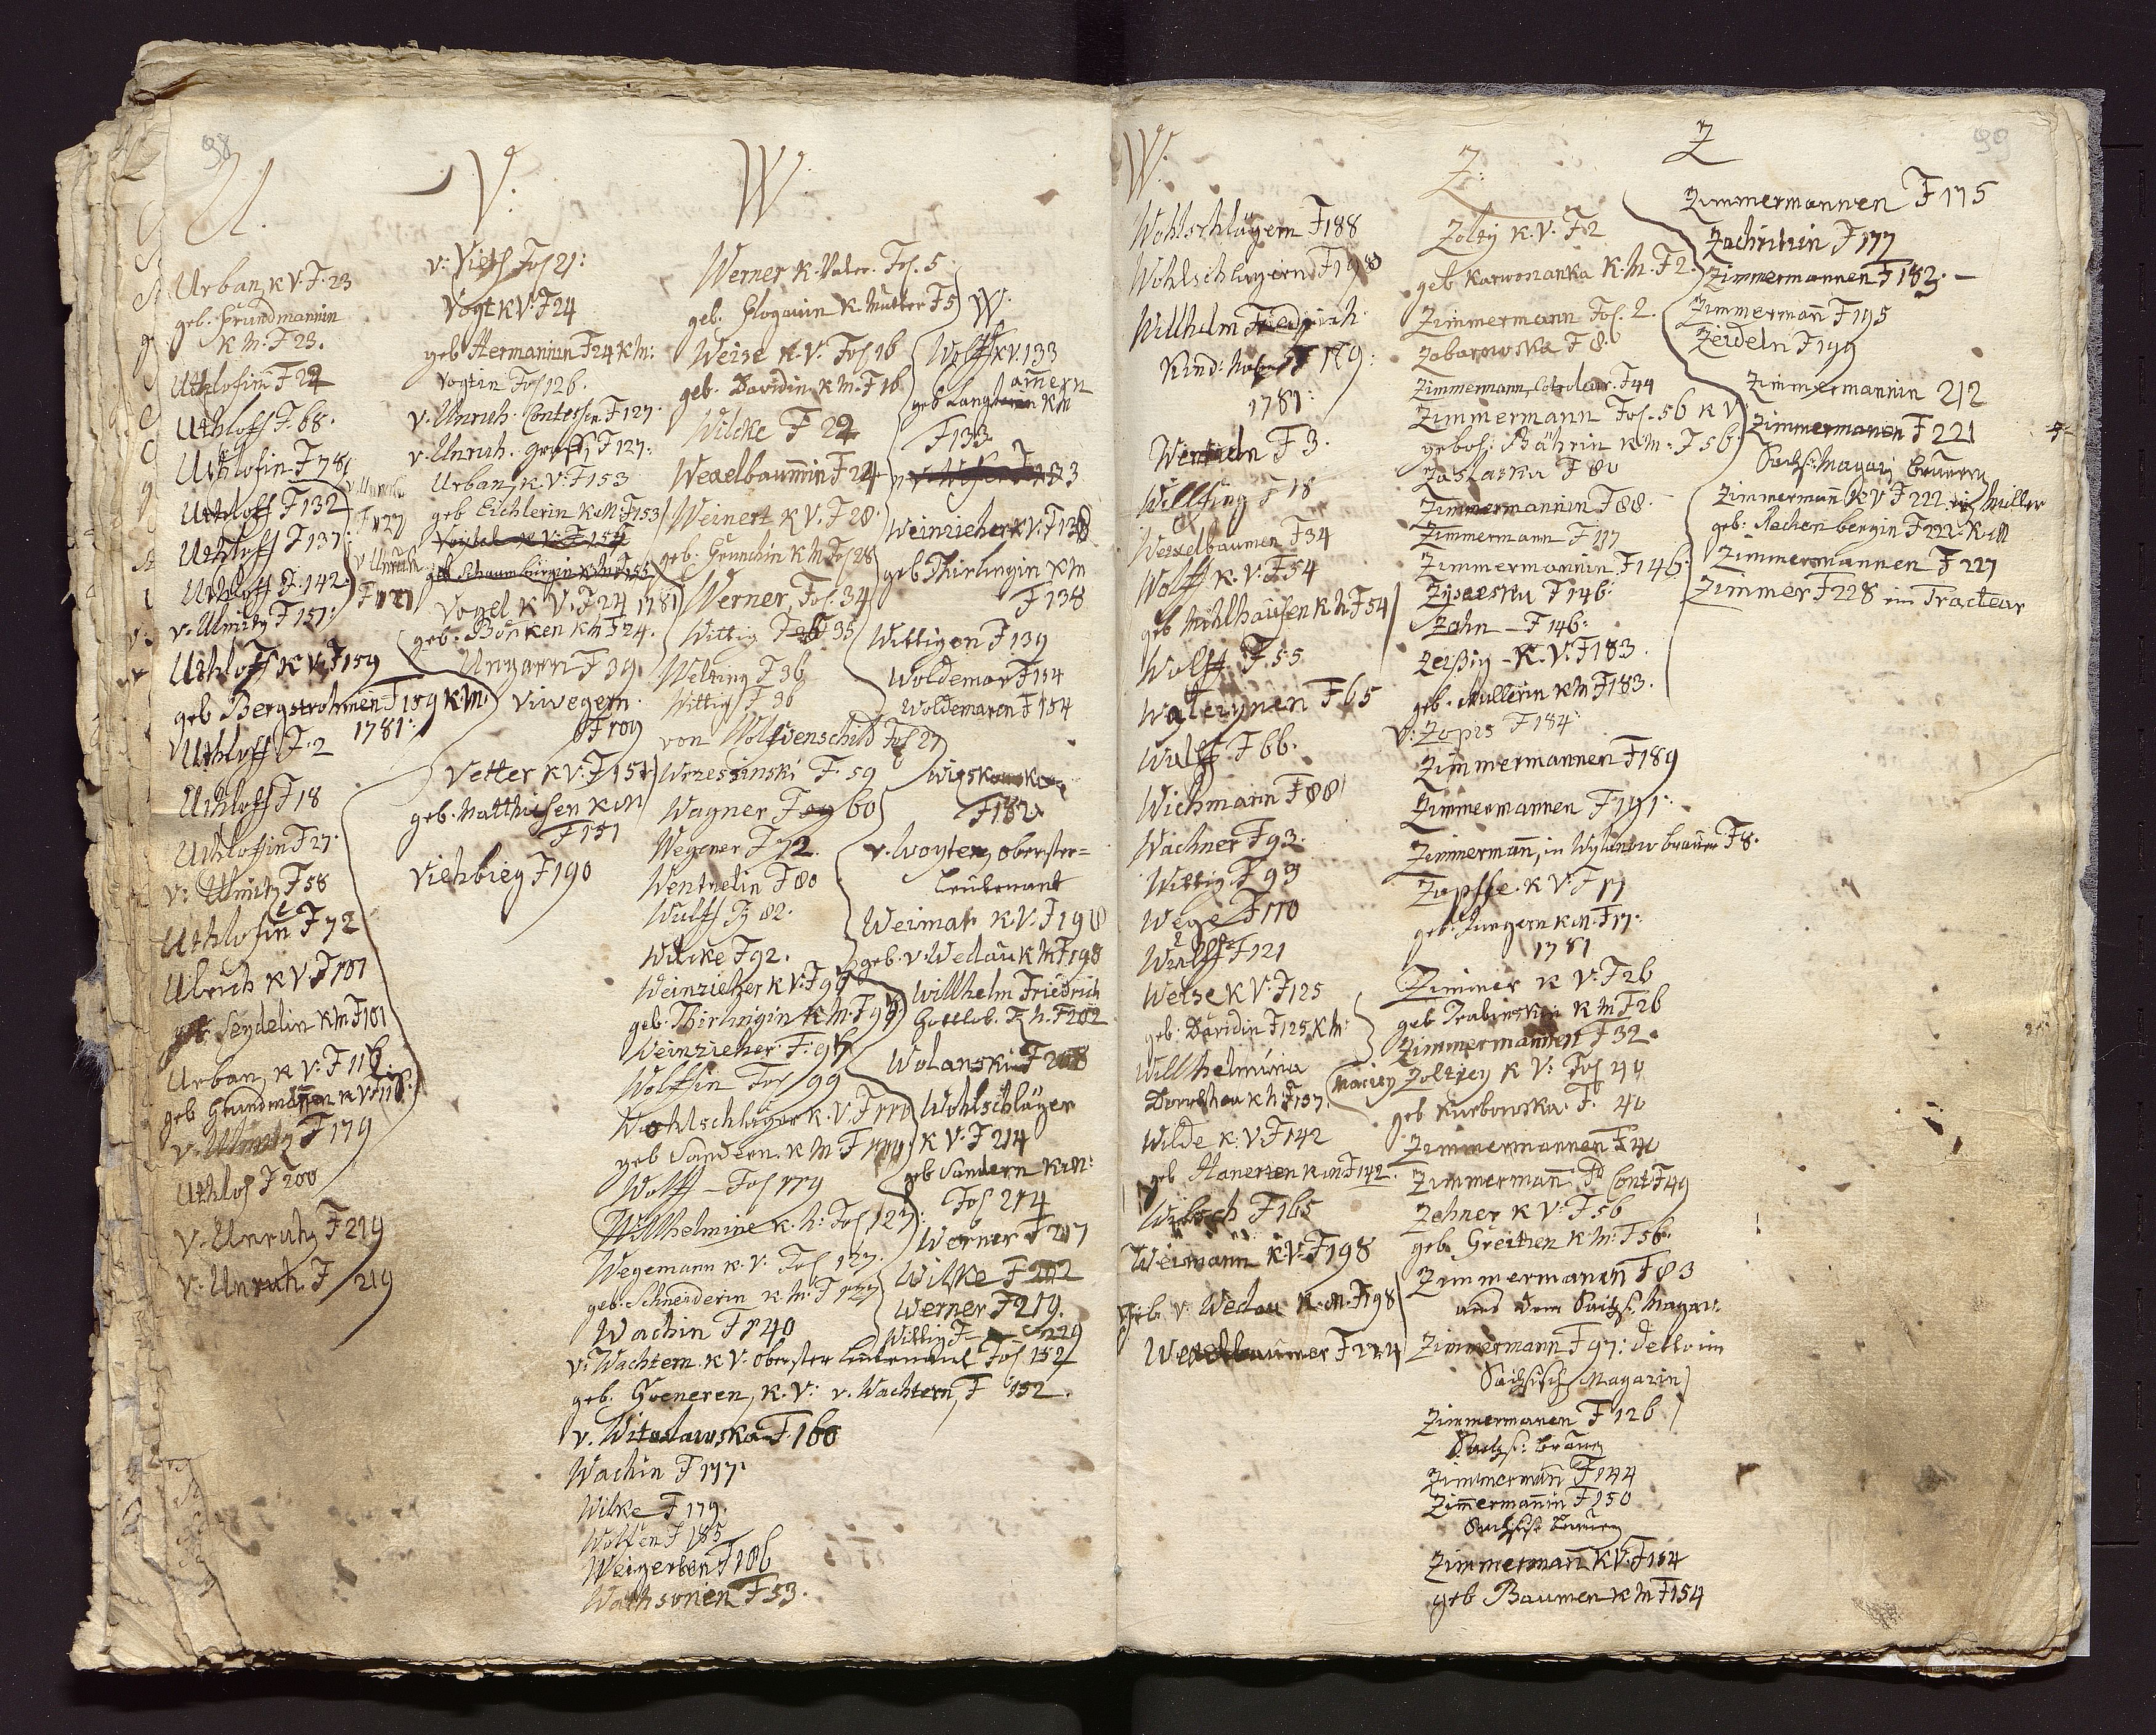 98
U.
Urban, K V. F. 23
geb. Grundmannin
K M: F 23.
Uthlofin F 22
Uthloff F. 68.
Uthlofin F 78
Uthloff F 132
Uthloff F 137
Uthloff F. 142
v. Ulmitz F 151:
Uthloff K V. F 159
geb Bergstrohmen F 159 K M.
1781:
Uthloff F. 2
Uthloff F 18
Uthloffin F 27.
v: Ulmitz F 58
Uthlofin F 72
Ulrich K V. F 101
geb. Seydelin K M F 101
Urban, K V. F 116
geb Grundmannen
v. Ulmitz F 179
Uthlof F 200
V. Unruhy F 219
v. Unruh F 219
v. Unruh
F 127
v Unruh
V.
v: Vieth Fol 21:
Vogt K V. F 24
geb Hermannin F 24 K M:
Vogtin Fol 126.
v. Unruh. Contessin F 127.
v. Unruh. Graff, F 127:
Urban, K. V. F 153
geb Eichlerin K M F 153
Vogel K V. F 24 1781
geb. Bönken K M F 24.
Ungarn F 39.
Viwegern.
F 109
Vetter K V. F 151
geb. Matthisen K M
F 151
Viehbieg F 190
W.
Werner K. Vater. Fol. 5
geb. Glogauin K. Mutter F 5
Weise K. V. Fol 16
geb. Davidin K M. F 16
Wilcke F 22
Wexelbaumin F 24
Weinert K V. F 28.
geb. Grunchin K M Fol 28
Werner, Fol. 34
Wittig F 35
Welting F 36
Wittig F 36
von Wolfvenschild Fol 27
Wrzesinski F 59
Wagner F 60
Wegener F 72.
Wentzelin F 80
Wulff F 82.
Wilcke F 92.
Weinzieher K V. F 97
geb. Thirlingin K. M. F 97
Weinzieher F. 97
Wolffin Fol 99
Wohlschläger K. V. F 110
geb Sandern. K M. F 110
Wolff - Fol 119
Willhelmine K. K: Fol 127
Wegemann K. V. Fol 127.
geb. Schneiderin K. M. F 127
Wachin F 140
v: Wachtern. K V. Oberster Lieutenant Fol 152
geb. Goeneren, K. V: v. Wachtern, F 152.
v. Witoslawska F 160
Wachin F 177.
Wilke F 179.
Wolfen F 185
Weigerben F 186
Wachsonen F 53.
W.
Wolff K V. 133
geb Langhammern K M
F 133
Weinzieher K V. F 138
geb Thirlingin K M
F 138
Wittigen F 139
Woldemar F 154
Woldemaren F 154
F 182
v. Woyten, Oberster=
Leutenant
Weimar K V. F 198
geb. v. Wedau K M F 198
Willhelm Friedrich
Gottlob. F. K. F 202
Wolanski F 208
Wohlschläger
K V. F 214
geb Sandern K M:
Fol 214
Werner F 217
Wilke F 212
Werner F 219.
Wittig F 229
99
W.
Wohlschlägern F 188
Wohlschlagern F 198
Willhelm Friedrich
F 179:
1781:
Wentzeln F 3.
Willfing F 18
Wexelbaumen F 34
Wolff K. V. F 54
geb Mühlhausen K. M. F 54
Wolff. F. 55
Walezynen F 65
Wulff F 66.
Wichmann F 88
Wachner F 93.
Wittig F 99
Wege F 110
Wulff F 121
Weise K V. F 125
geb. Davidin F 125, K M:
Willhelmina
Dorothea K K F 137
Wilde K. V. F 142
geb Hanerten K M F 142.
Wibsch F 165
Weimann K V. F 198
geb. v. Wedau K. M. F 198
Wexelbaumer F 224
Z.
Zolty K. V. F 2
geb Karwonanka K. M. F 2.
Zimmermann Fol. 2
Zabarowska F 86
Zimmermann, F 44
Zimmermann Fol. 56 K V
gebohr: Bährin K M: F 56
Zaslaska F 80
Zimmermannin F 88
Zimmermann F 117
Zimmermannin F 146
Zysaeska F 146:
Zahn - F 146:
Zeißig - K. V: F 183.
geb. Mullerin K M F 183.
V. Zopis F 184:
Zimmermannen F 189
Zimmermannen F 191:
Zimmermann, in Wylanow Brauer F 8.
Zapffe. K V: F 17
geb. Jungern K M. F 17:
1781
Zimmer K V. F 26
geb Trabinskin K M F 26
Zimmermannen F 32.
Maciey Zoltzey K V: Fol 40
geb Kurbowska F. 40
Zimmermannen F 40
Zimmermann F 49
Zehner K V. F 56
geb. Greithen K M: F 56.
Zimmermanen F 83
aus dem Sächs: Magaz:
Zimmermann F 97: detto im
Sächsisch Magazin
Zimmermanen F 126
Sächs: Brauer
Zimmermann F 144
Zimmermannin F 150
Zimmermann K V. F 154
geb Baumen K M F 154
Z
Zimmermannen F 175
Zachritzin F 177
Zimmermannen F 182. -
Zimmermann F 195
Zeideln F 199
Zimmermannin 212
Zimmermanen F 221
Sächs: Magaz: Brauern
Zimmermann K V F 222 ein Müller
geb: Rechenbergin F 222 K M
Zimmermannen F 227
Zimmer F 228 im Tracteur